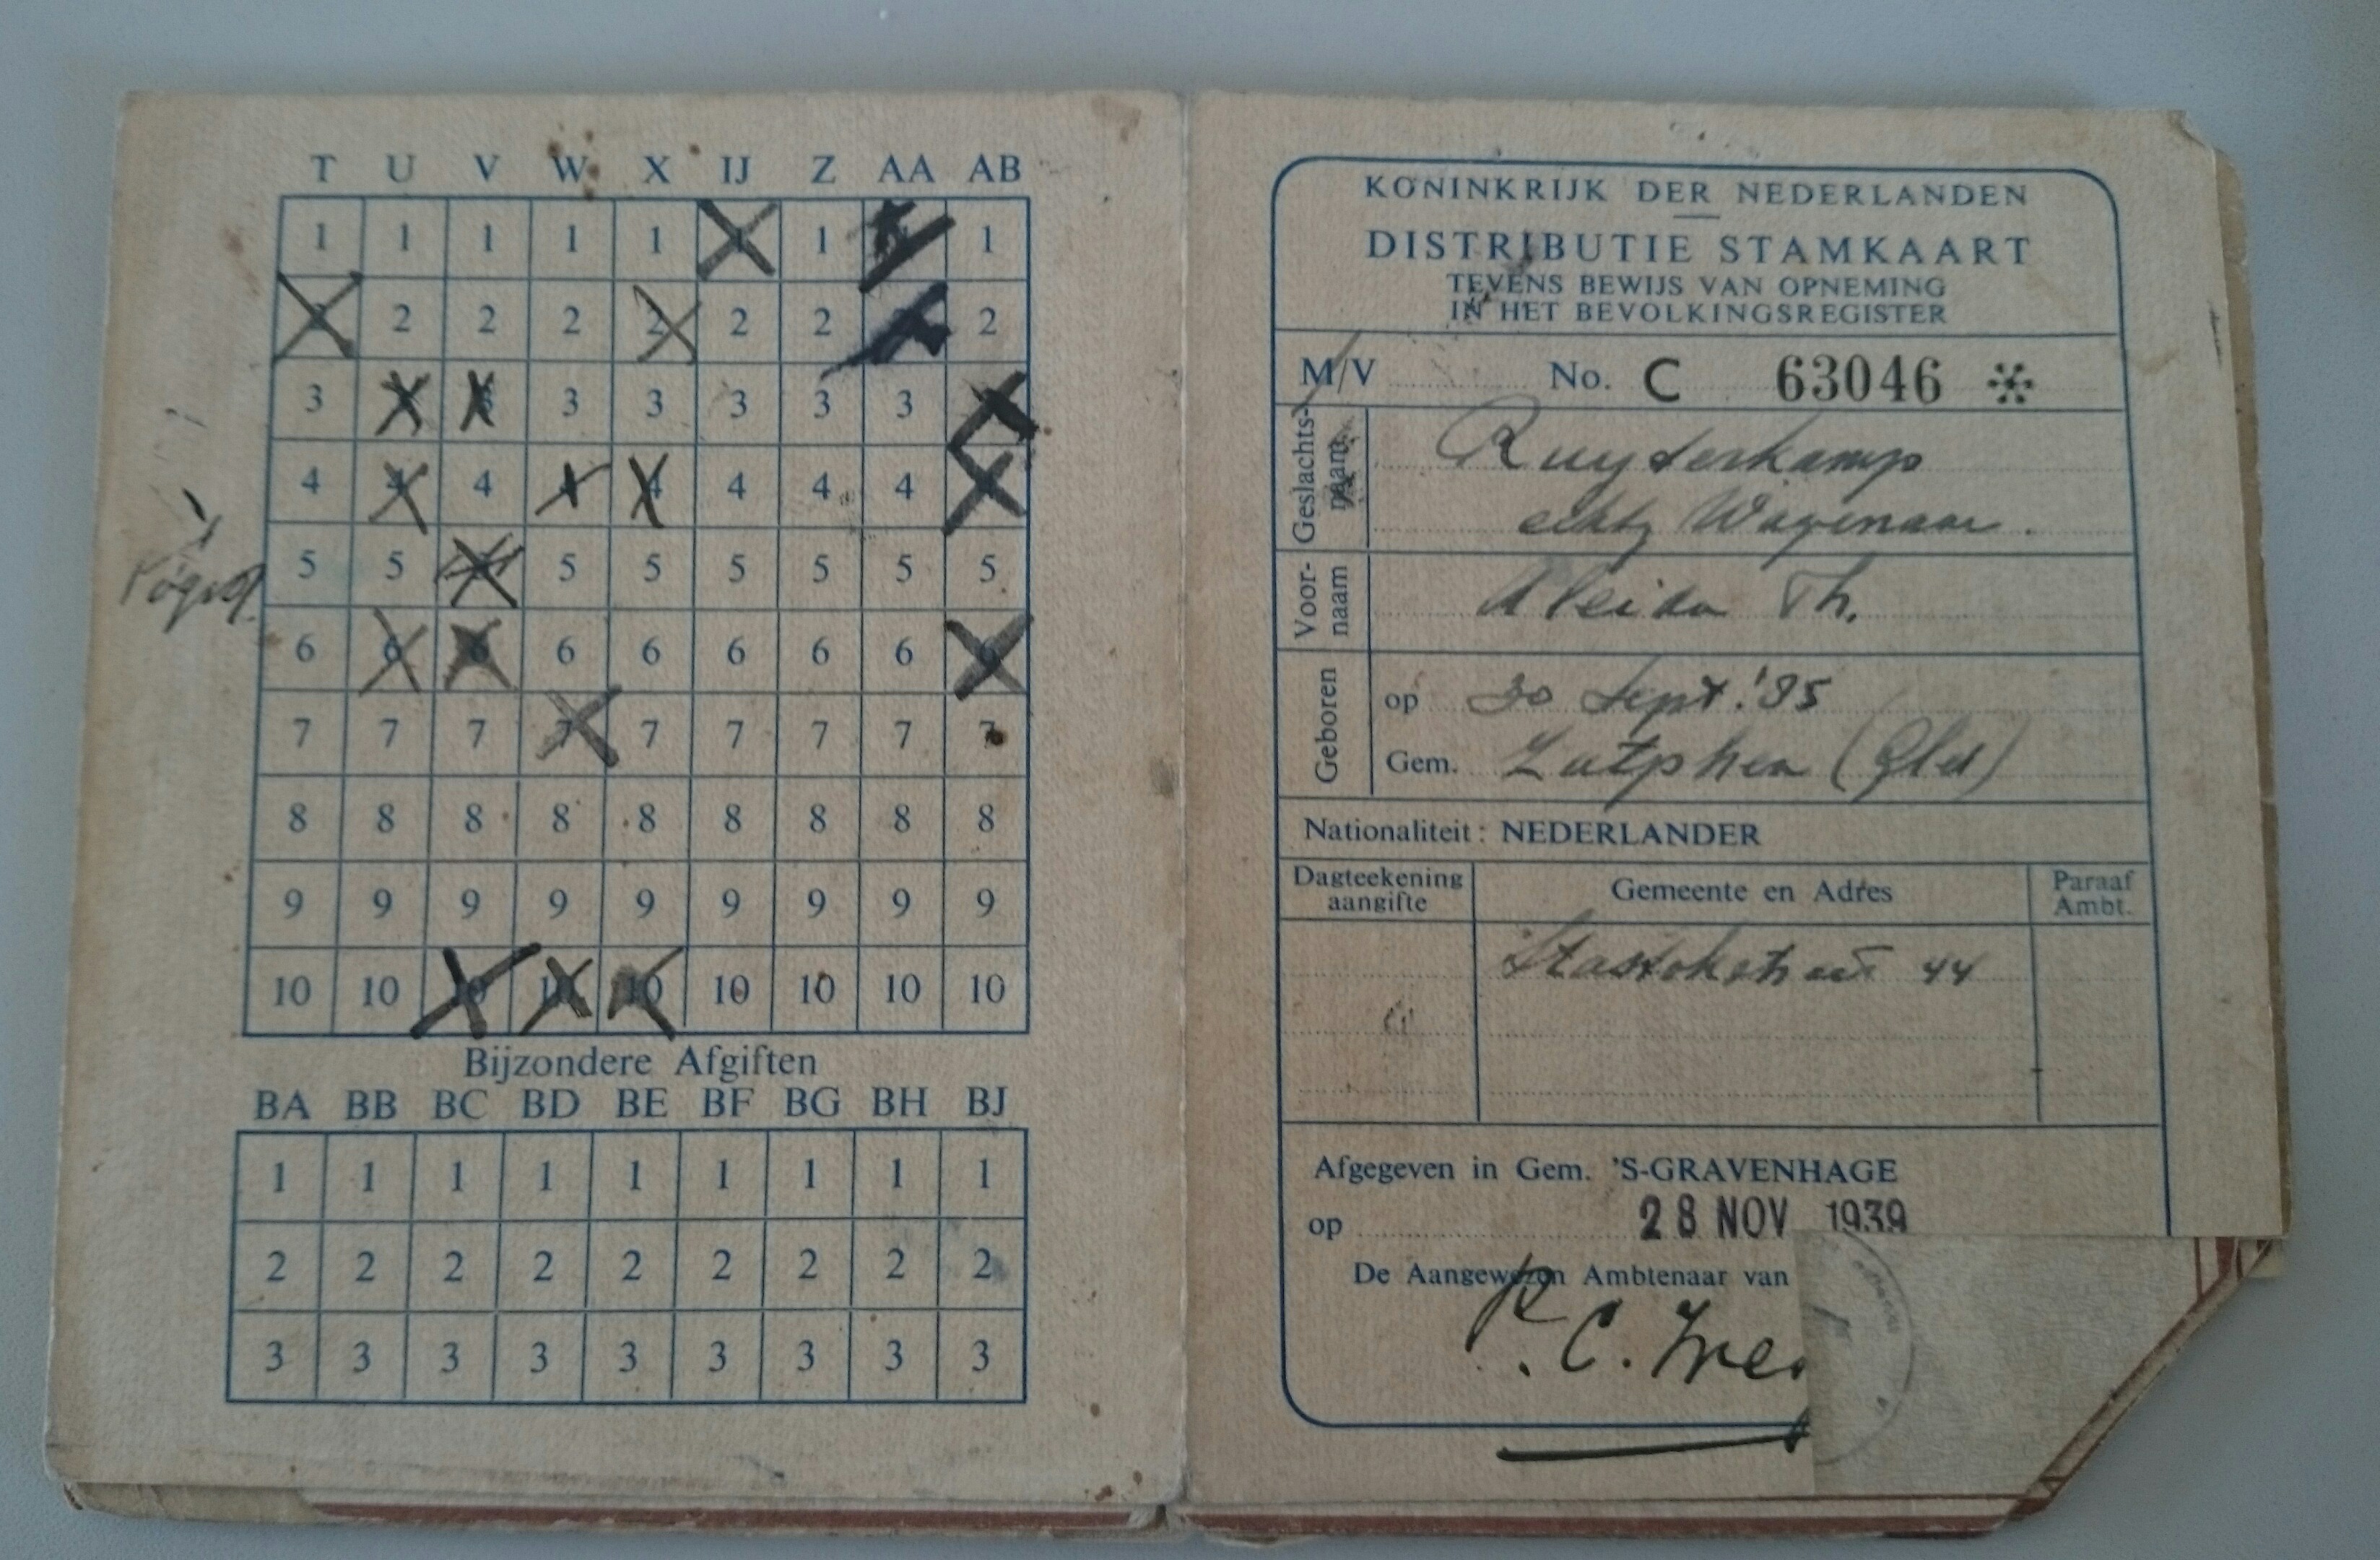 T U V W X IJ Z AA AB
1 1 1 1 1 1 1 1
2 2 2 2 2 2 2
3 3 3 3 3 3 3
4 4 4 4 4 4
5 5 5 5 5 5 5 5
6 6 6 6 6 6 6 6
7 7 7 7 7 7 7 7 7
8 8 8 8 8 8 8 8 8
9 9 9 9 9 9 9 9 9
10 10 10 10 10 10 10 10 10
Bijzondere Afgiften
BA BB BC BD BE BF BG BH BJ
1 1 1 1 1 1 1 1 1
2 2 2 2 2 2 2 2 2
3 3 3 3 3 3 3 3 3
KONINKRIJK DER NEDERLANDEN
DISTRIBUTIE STAMKAART
TEVENS BEWIJS VAN OPNEMING
IN HET BEVOLKINGSREGISTER
M/V No. C 63046
Geslachts-
naam
Ruyterkamp
echtg Wagenaar.
Voor-
naam
Aleida Th.
Geboren
op 30 Sept. '95
Gem. Zutphen (Gld)
Nationaliteit: NEDERLANDER
Dagteekening
aangifte
Gemeente en Adres
Paraaf
Ambt.
Stastokstraat 44
Afgegeven in Gem. 'S-GRAVENHAGE
op 28 NOV 1939
De Aangewezen Ambtenaar van